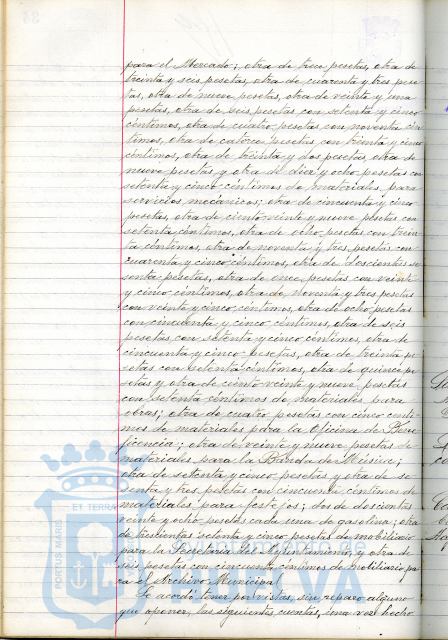 para el Mercado; otra de trece pesetas, otra de
treinta y seis pesetas, otra de cuarenta y tres pese-
tas, otra de nueve pesetas, otra de veinte y una
pesetas, otra de seis pesetas con setenta y cinco
céntimos, otra de cuatro pesetas con noventa cén-
timos, otra de catorce pesetas con treinta y cinco
céntimos, otra de treinta y dos pesetas otra de
nueve pesetas y otra de diez y ocho pesetas con
setenta y cinco céntimos de materiales para
servicios mecánicos; otra de cincuenta y cinco
pesetas, otra de ciento veinte y nueve pesetas con
setenta céntimos, otra de ocho pesetas con trein-
ta céntimos, otra de noventa y tres pesetas con
cuarenta y cinco céntimos, otra de doscientas se-
senta pesetas, otra de once pesetas con veinte
y cinco céntimos, otra de noventa y tres pesetas
con veinte y cinco céntimos, otra de ocho pesetas
con cincuenta y cinco céntimos, otra de seis
pesetas con setenta y cinco céntimos, otra de
cincuenta y cinco pesetas, otra de treinta pe-
setas con setenta céntimos, otra de quince pe-
setas y otra de ciento veinte y nueve pesetas
con setenta céntimos de materiales para
obras; otra de cuatro pesetas con cinco cénti-
mos de materiales para la Oficina de Bene-
ficencia; otra de veinte y nueve pesetas de
materiales para la Banda de Música;
otra de setenta y cinco pesetas y otra de se-
senta y tres pesetas con cincuenta céntimos de
materiales para festejos; dos de doscientas
veinte y ocho pesetas cada una de gasolina; otra
de trescientas setenta y cinco pesetas de mobiliario
para la Secretaría del Ayuntamiento y otra de
seis pesetas con cincuenta céntimos de mobiliario pa-
ra el Archivo Municipal.
Se acordó tener por vistas, sin reparo alguno
que oponer, las siguientes cuentas, una vez hecho
PORTUS MARIS
ET TERRA